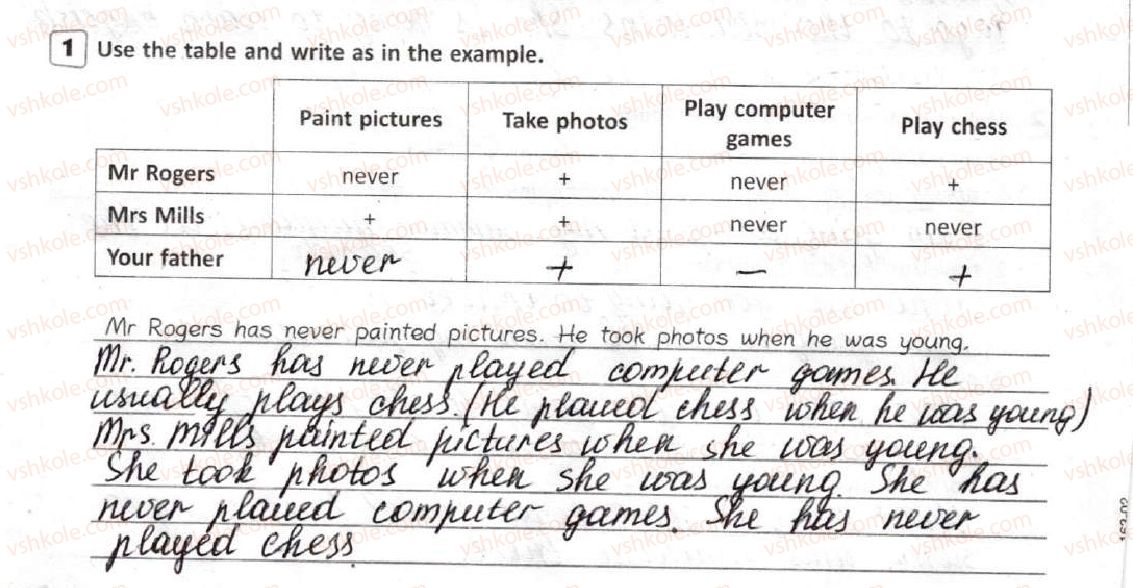 1 Use the table and write as in the example.
Paint pictures Take photos Play computer games Play chess
Mr Rogers never + never +
Mrs Mills + + never never
Your father never + — +
Mr Rogers has never painted pictures. He took photos when he was young.
Mr. Rogers has never played computer games. He
usually plays chess. (He played chess when he was young)
Mrs. Mills painted pictures when she was young.
She took photos when she was young. She has
never played computer games. She has never
played chess
vshkole.com